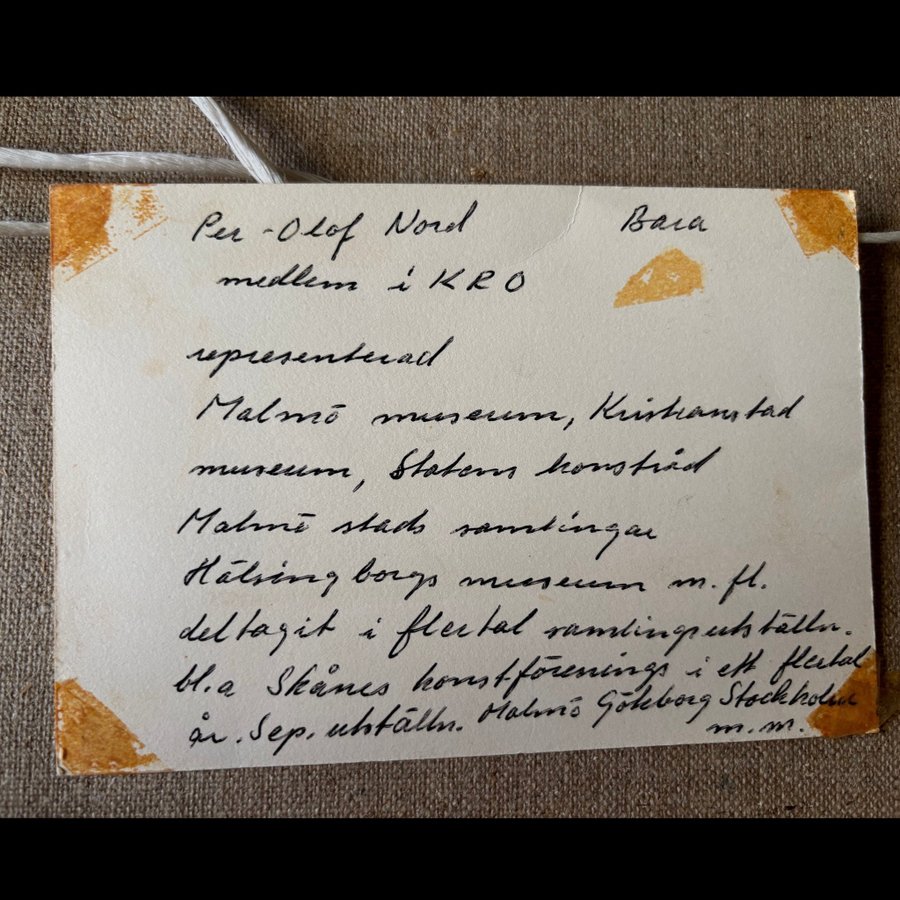 Per-Olof Nord Bara
medlem i KRO
representerad
Malmö museum, Kristianstad
museum, Statens konstråd
Malmö stads samlingar
Hälsingborgs museum m.fl.
deltagit i flertal samlingsutställn.
bl.a Skånes konstförenings i ett flertal
år. Sep. utställn. Malmö Göteborg Stockholm
m.m.